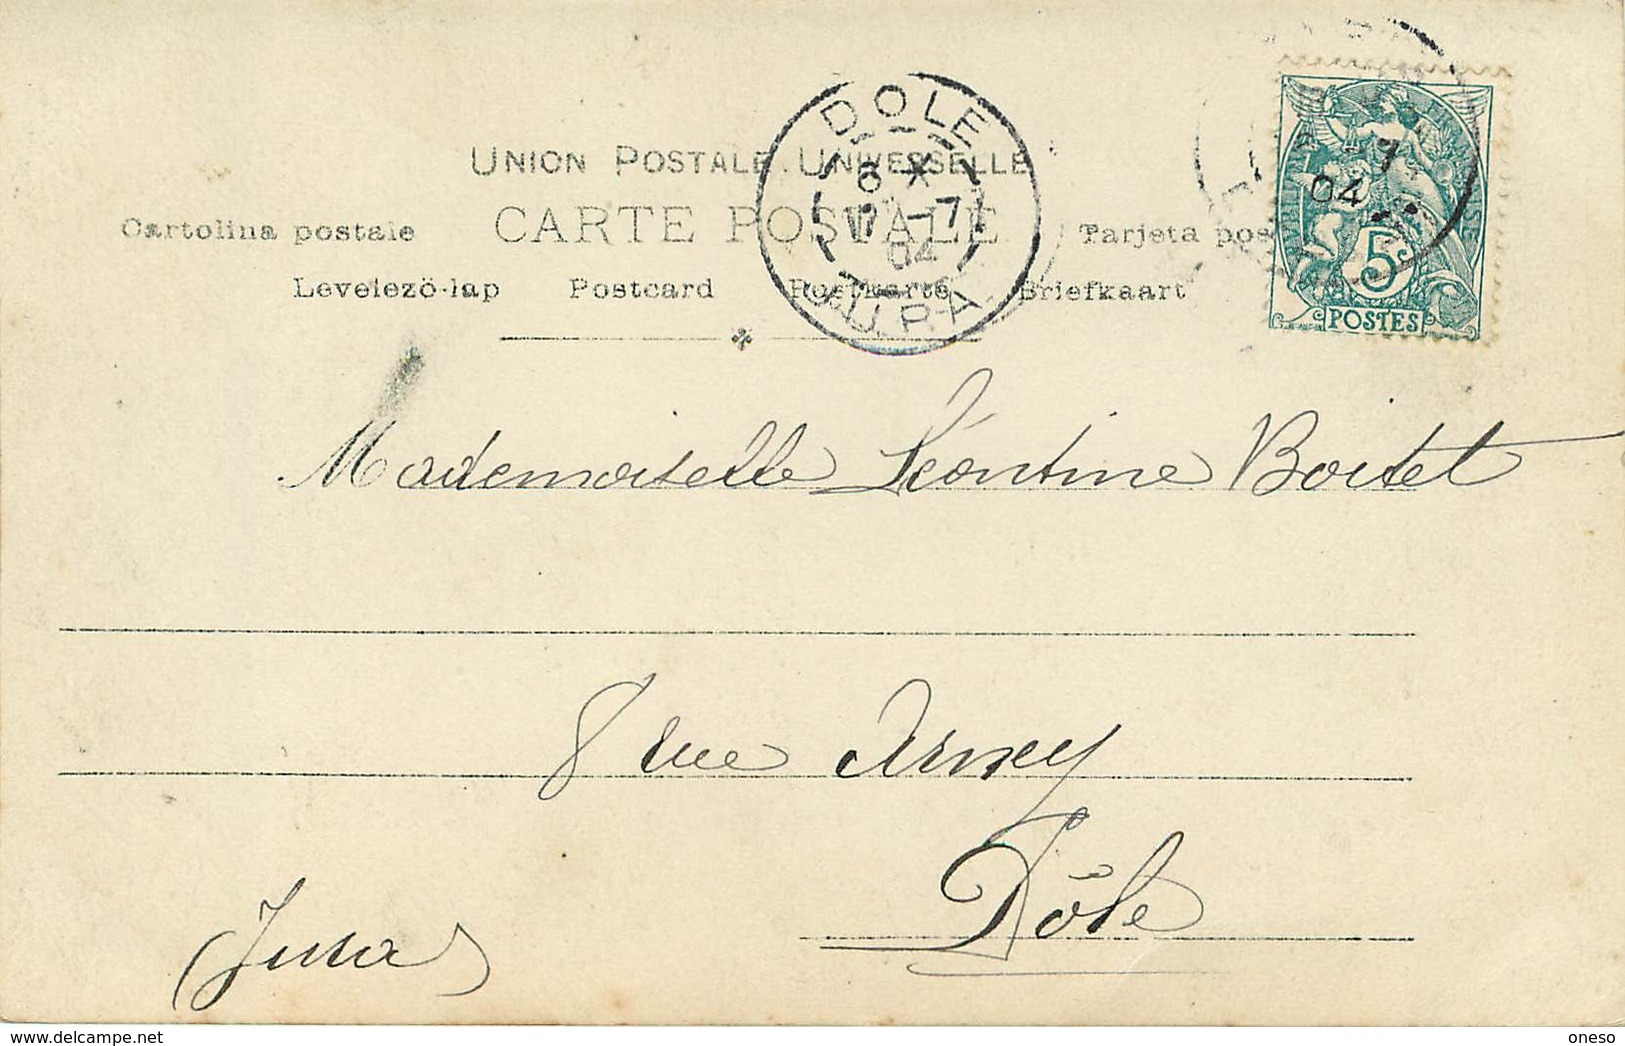 UNION POSTALE UNIVERSELLE
CARTE POSTALE
Cartolina postale
Tarjeta pos
Levelezö-lap Postcard Postkarte Briefkaart
DOLE
6 X
-7
04
JURA
7
04
5
POSTES
Mademoiselle Léontine Boitet
8 rue Arney
Dôle
(Jura)
https://www.delcampe.net
oneso